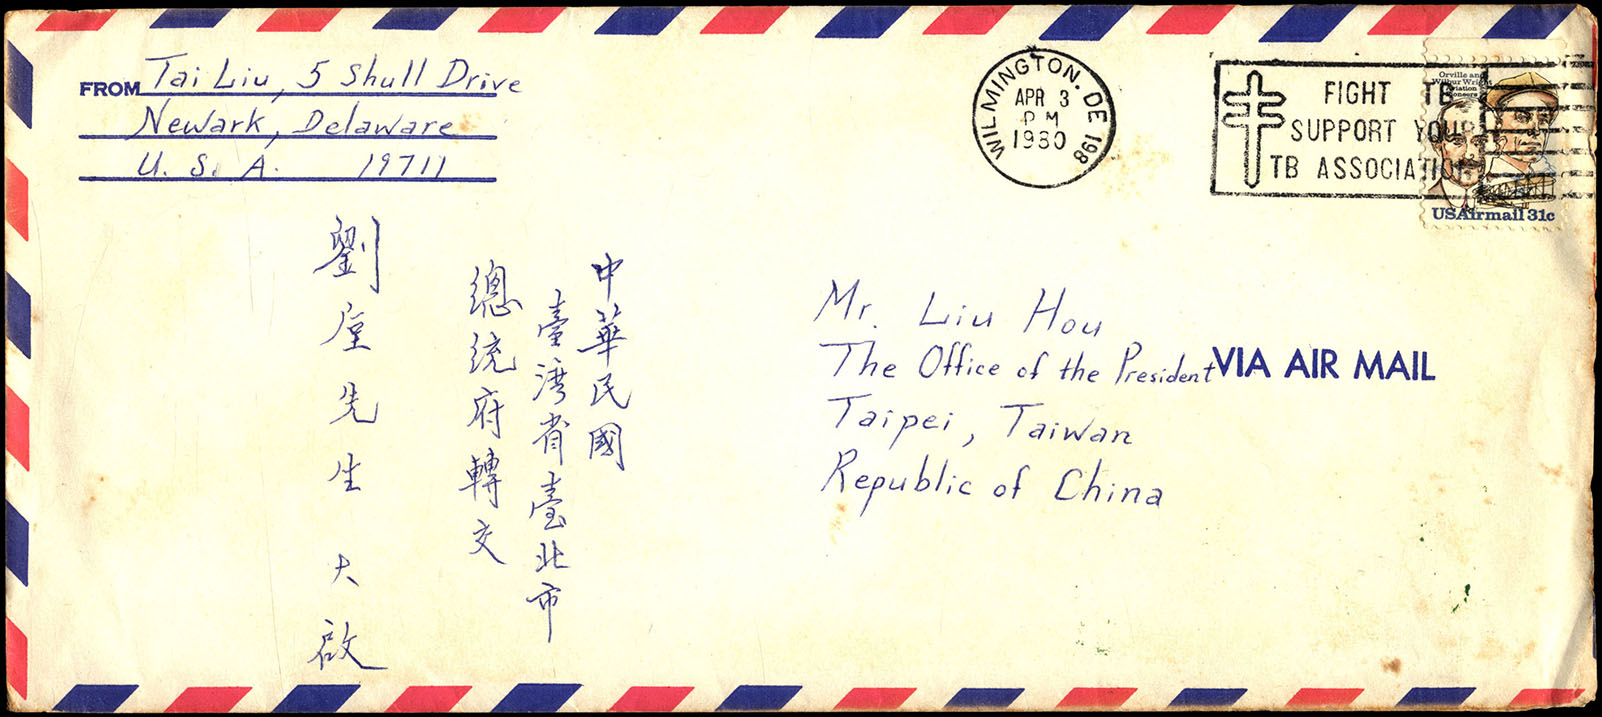 FROM Tai Liu, 5 Shull Drive
Newark, Delaware
U. S. A. 19711
WILMINGTON, DE 198
APR 3
PM
1980
FIGHT TB
SUPPORT YOUR
TB ASSOCIATION
Orville and
Wilbur Wright
Aviation
Pioneers
USAirmail 31c
中華民國
臺灣省臺北市
總統府轉交
劉垕先生大啟
Mr. Liu Hou
The Office of the President
VIA AIR MAIL
Taipei, Taiwan
Republic of China